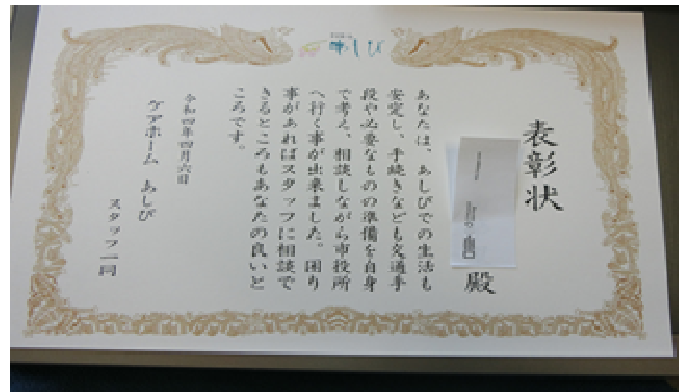 あしび
表彰状
殿
あなたは、あしびでの生活も
安定し、手続きなども交通手
段や必要なものの準備を自身
で考え、相談しながら市役所
へ行く事が出来ました。困り
事があればスタッフに相談で
きるところもあなたの良いと
ころです。
令和四年四月六日
ケアホーム あしび
スタッフ一同